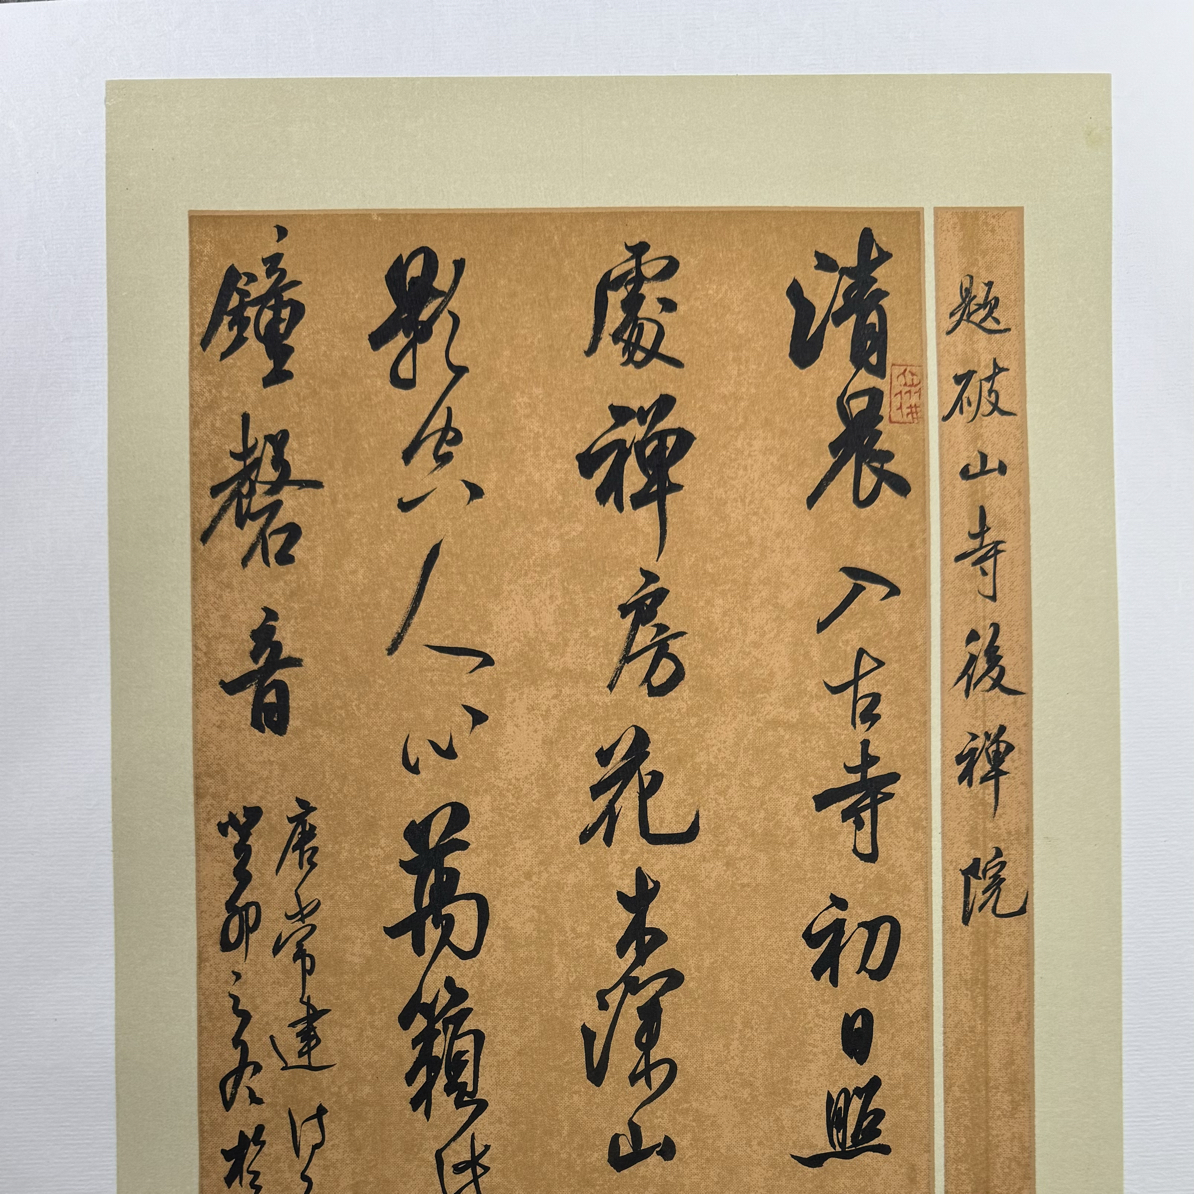 题破山寺後禅院
清晨入古寺初日照
處禅房花木深山
影空人心萬籟此
鐘磬音
唐常建诗
癸卯之冬於